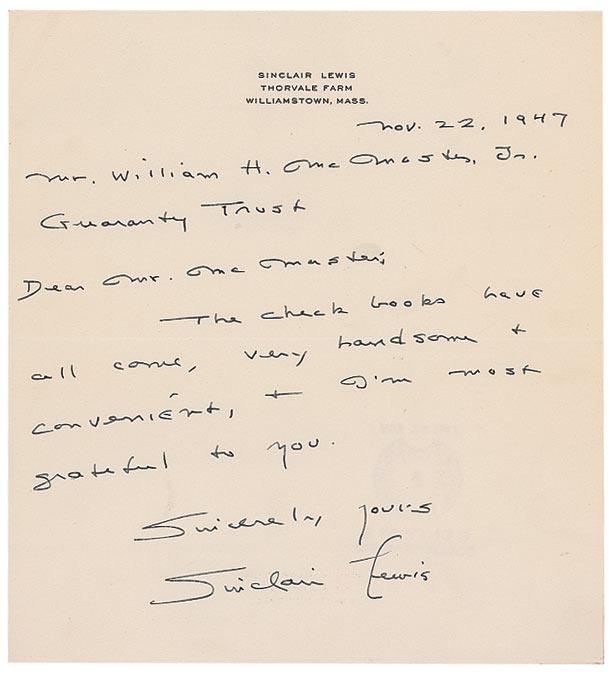 SINCLAIR LEWIS
THORVALE FARM
WILLIAMSTOWN, MASS.
Nov. 22, 1947
Mr. William H. McMaster, Jr.
Guaranty Trust
Dear Mr. McMaster,
The check books have
all come, very handsome +
convenient, + I'm most
grateful to you.
Sincerely yours
Sinclair Lewis